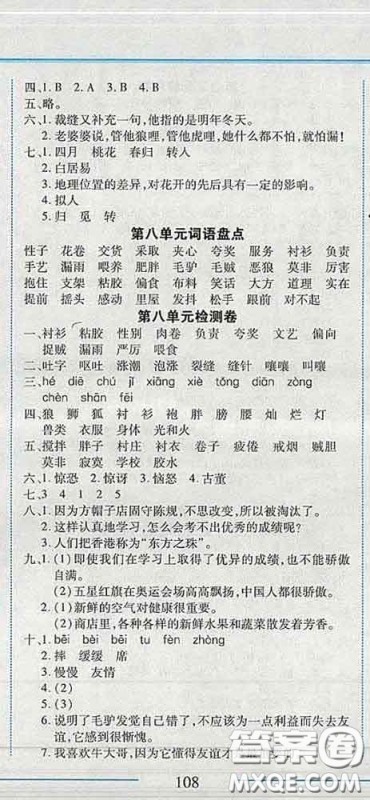 四、1. B  2. A  3. B  4. B
五、略。
六、1. 裁缝又补充一句,他指的是明年冬天。
2. 老婆婆说,管他狼哩,管他虎哩,她什么都不怕,就怕漏!
七、1. 四月  桃花  春归  转人
2. 白居易
3. 地理位置的差异,对花开的先后具有一定的影响。
4. 拟人
5. 归  觅  转
第八单元词语盘点
性子  花卷  交货  采取  夹心  夸奖  服务  衬衫  负责
手艺  漏雨  喂养  肥胖  毛驴  毛贼  恶狼  莫非  厉害
抱住  支架  粘胶  偏食  布料  笑话  大方  道理  实在
提前  摇头  感动  里屋  发抖  松手  跟前  对不起
第八单元检测卷
一、衬衫  粘胶  性别  肉卷  负责  夸奖  文艺  偏向
捉贼  漏雨  严厉  喂食
二、吐字  呕吐  涨潮  泡涨  裂缝  缝针  嚷嚷  叫嚷
三、hé  diē  chú  jī  xiāng  xiè  tóng  diàn  zhǎng
chèn  shān  fēi
四、狼  狮  狐  衬  衫  袍  胖  膀  腰  灿  烂  灯
兽类  衣服  身体  光和火
五、搅拌  胖子  村庄  衬衣  卷子  疲倦  戒烟  贼胆
莫非  寂寞  学校  胶水
六、1. 惊恐  2. 惊讶  3. 恼怒  4. 古董
七、3  4  1  2  5
八、1. 因为方帽子店固守陈规,不思改变,所以被淘汰了。
2. 这样认真地学习,怎么会考不出优秀的成绩呢?
3. 人们把香港称为“东方之珠”。
九、1. (1) 即使我们在学习上取得了优异的成绩,也不能骄傲
自满。
(2) 五星红旗在奥运会场高高飘扬,中国人都很骄傲。
2. (1) 新鲜的空气对健康很重要。
(2) 商店里,各种各样的新鲜水果和蔬菜散发着芳香。
十、1. bēi  bèi  bēi  tu  fèn  zhòng
2. 摔  缓缓  席
3. 慢慢  友情
4. (2)
5. (2)
6. 说明了毛驴发觉自己错了,不应该为一点利益而失去友
谊,它感到很惭愧。
7. 我喜欢牛大哥,因为它懂得友谊
108
答案圈
MXQE.COM